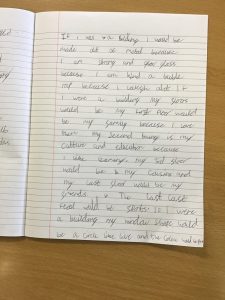 If I was a building I would be
made out of metal because
I am strong and glass
because I am kind a
because I laugh alot If
I were a building my floors
would be my first floor would
be my family because I love
them my second floor is my
culture and education because
I like learning. my 3rd floor
would be my cousins and
my last floor would be my
friends. The last
would be sports. If I were
a building my window shape would
be a circle like and the colour would